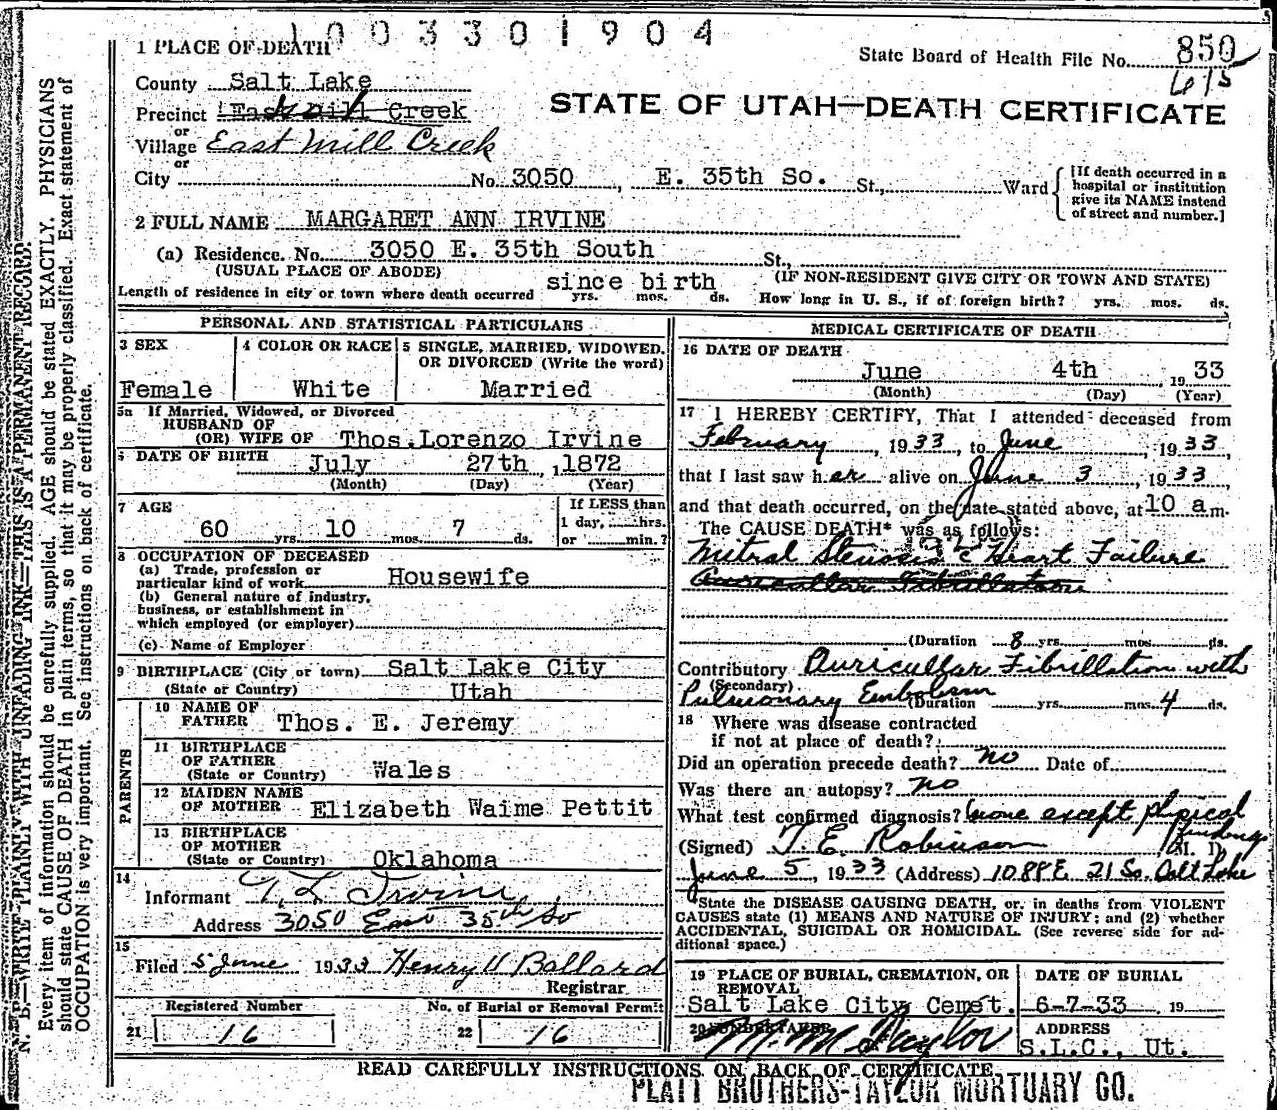 1003301904
1 PLACE OF DEATH
State Board of Health File No. 850
615
County Salt Lake
Precinct East Mill Creek
STATE OF UTAH—DEATH CERTIFICATE
or
Village East Mill Creek
or
City No. 3050, E. 35th So. St., Ward
[If death occurred in a hospital or institution give its NAME instead of street and number.]
2 FULL NAME MARGARET ANN IRVINE
(a) Residence. No. 3050 E. 35th South St.,
(USUAL PLACE OF ABODE) (IF NON-RESIDENT GIVE CITY OR TOWN AND STATE)
Length of residence in city or town where death occurred since birth yrs. mos. ds. How long in U. S., if of foreign birth? yrs. mos. ds.
PERSONAL AND STATISTICAL PARTICULARS
3 SEX
Female
4 COLOR OR RACE
White
5 SINGLE, MARRIED, WIDOWED, OR DIVORCED (Write the word)
Married
5a If Married, Widowed, or Divorced
HUSBAND OF
(OR) WIFE OF Thos. Lorenzo Irvine
DATE OF BIRTH July 27th, 1872
(Month) (Day) (Year)
7 AGE
60 yrs. 10 mos. 7 ds.
If LESS than
1 day, hrs.
or min.?
8 OCCUPATION OF DECEASED
(a) Trade, profession or
particular kind of work Housewife
(b) General nature of industry,
business, or establishment in
which employed (or employer)
(c) Name of Employer
9 BIRTHPLACE (City or town) Salt Lake City
(State or Country) Utah
PARENTS
10 NAME OF
FATHER Thos. E. Jeremy
11 BIRTHPLACE
OF FATHER
(State or Country) Wales
12 MAIDEN NAME
OF MOTHER Elizabeth Waime Pettit
13 BIRTHPLACE
OF MOTHER
(State or Country) Oklahoma
14
Informant T. L. Irvine
Address 3050 East 35th So
15
Filed 5 June 1933 Henry H Ballard
Registrar
Registered Number
21 16
No. of Burial or Removal Permit
22 16
MEDICAL CERTIFICATE OF DEATH
16 DATE OF DEATH
June 4th, 1933
(Month) (Day) (Year)
17 I HEREBY CERTIFY, That I attended deceased from
February, 1933, to June, 1933,
that I last saw her alive on June 3, 1933,
and that death occurred, on the date stated above, at 10 a m.
The CAUSE DEATH* was as follows:
Mitral Stenosis c Heart Failure
Auricullar Fibrillation
(Duration 8 yrs. mos. ds.
Contributory Auricullar Fibrillation with
(Secondary)
Pulmonary Embolism
(Duration yrs. mos. 4 ds.
18 Where was disease contracted
if not at place of death?
Did an operation precede death? no Date of
Was there an autopsy? no
What test confirmed diagnosis? none except physical findings
(Signed) T. E. Robinson M. D.
June 5, 1933 (Address) 1088 E. 21 So. Salt Lake
*State the DISEASE CAUSING DEATH, or, in deaths from VIOLENT
CAUSES state (1) MEANS AND NATURE OF INJURY; and (2) whether
ACCIDENTAL, SUICIDAL OR HOMICIDAL. (See reverse side for ad-
ditional space.)
19 PLACE OF BURIAL, CREMATION, OR
REMOVAL
Salt Lake City Cemet.
DATE OF BURIAL
6-7-33 19
20 UNDERTAKER
M. M. Taylor
ADDRESS
S.L.C., Ut.
READ CAREFULLY INSTRUCTIONS ON BACK OF CERTIFICATE
PLATT BROTHERS-TAYLOR MORTUARY CO.
N. B.—WRITE PLAINLY WITH UNFADING INK—THIS IS A PERMANENT RECORD.
Every item of information should be carefully supplied. AGE should be stated EXACTLY. PHYSICIANS
should state CAUSE OF DEATH in plain terms, so that it may be properly classified. Exact statement of
OCCUPATION is very important. See instructions on back of certificate.